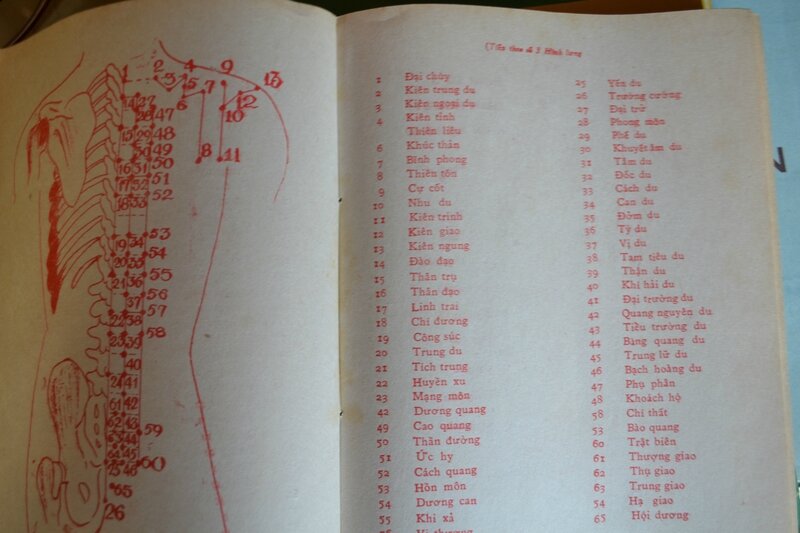 (Tiếp theo số 3 Hình lưng
1 Đại chùy
2 Kiên trung du
3 Kiên ngoại du
4 Kiên tỉnh
Thiên liêu
6 Khúc thân
7 Bỉnh phong
8 Thiên tôn
9 Cự cốt
10 Nhu du
11 Kiên trinh
12 Kiên giao
13 Kiên ngung
14 Đào đạo
15 Thân trụ
16 Thần đạo
17 Linh trai
18 Chí dương
19 Công súc
20 Trung du
21 Tích trung
22 Huyền xu
23 Mạng môn
42 Dương quang
49 Cao quang
50 Thần đường
51 Ức hy
52 Cách quang
53 Hồn môn
54 Dương can
55 Khí xả
25 Yêu du
26 Trường cường
27 Đại trữ
28 Phong môn
29 Phế du
30 Khuyết âm du
31 Tâm du
32 Đốc du
33 Cách du
34 Can du
35 Đởm du
36 Tỳ du
37 Vị du
38 Tam tiêu du
39 Thận du
40 Khí hải du
41 Đại trường du
42 Quang nguyên du
43 Tiểu trường du
44 Bàng quang du
45 Trung lữ du
46 Bạch hoàng du
47 Phụ phân
48 Khoách hộ
58 Chí thất
53 Bào quang
60 Trật biên
61 Thượng giao
62 Thụ giao
63 Trung giao
54 Hạ giao
65 Hội dương
1 2 3 4 5 6 7 9 13
12 10
8 11
14 27 47
28
15 29 48
49
16 30 50
17 52 51
18 33 52
19 34 53
20 35 54
21 36 55
37 56
22 38 57
23 39 58
40
24 41
61 42
62 43 59
63 44
64 45
25 46 60
65
26